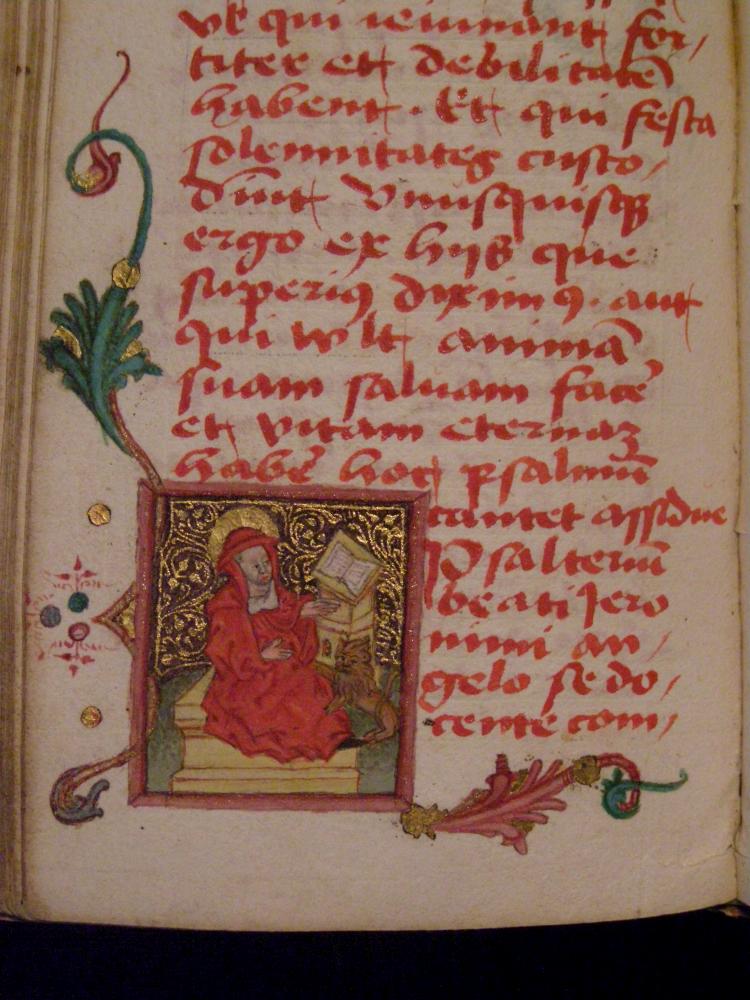 vl' qui ieiunant for/
titer et debilitatē
habent. Et qui festa
solennitates custo/
diūt Vnusquisqꝫ
ergo ex hijs que
superiꝰ diximꝰ. aut
qui wlt animā
suam saluam facē
et vitam eternaꝫ
habē hoc psalmū
cantet assidue
Psalteriū
beati Jero
nimi an/
gelo se do/
cente com/